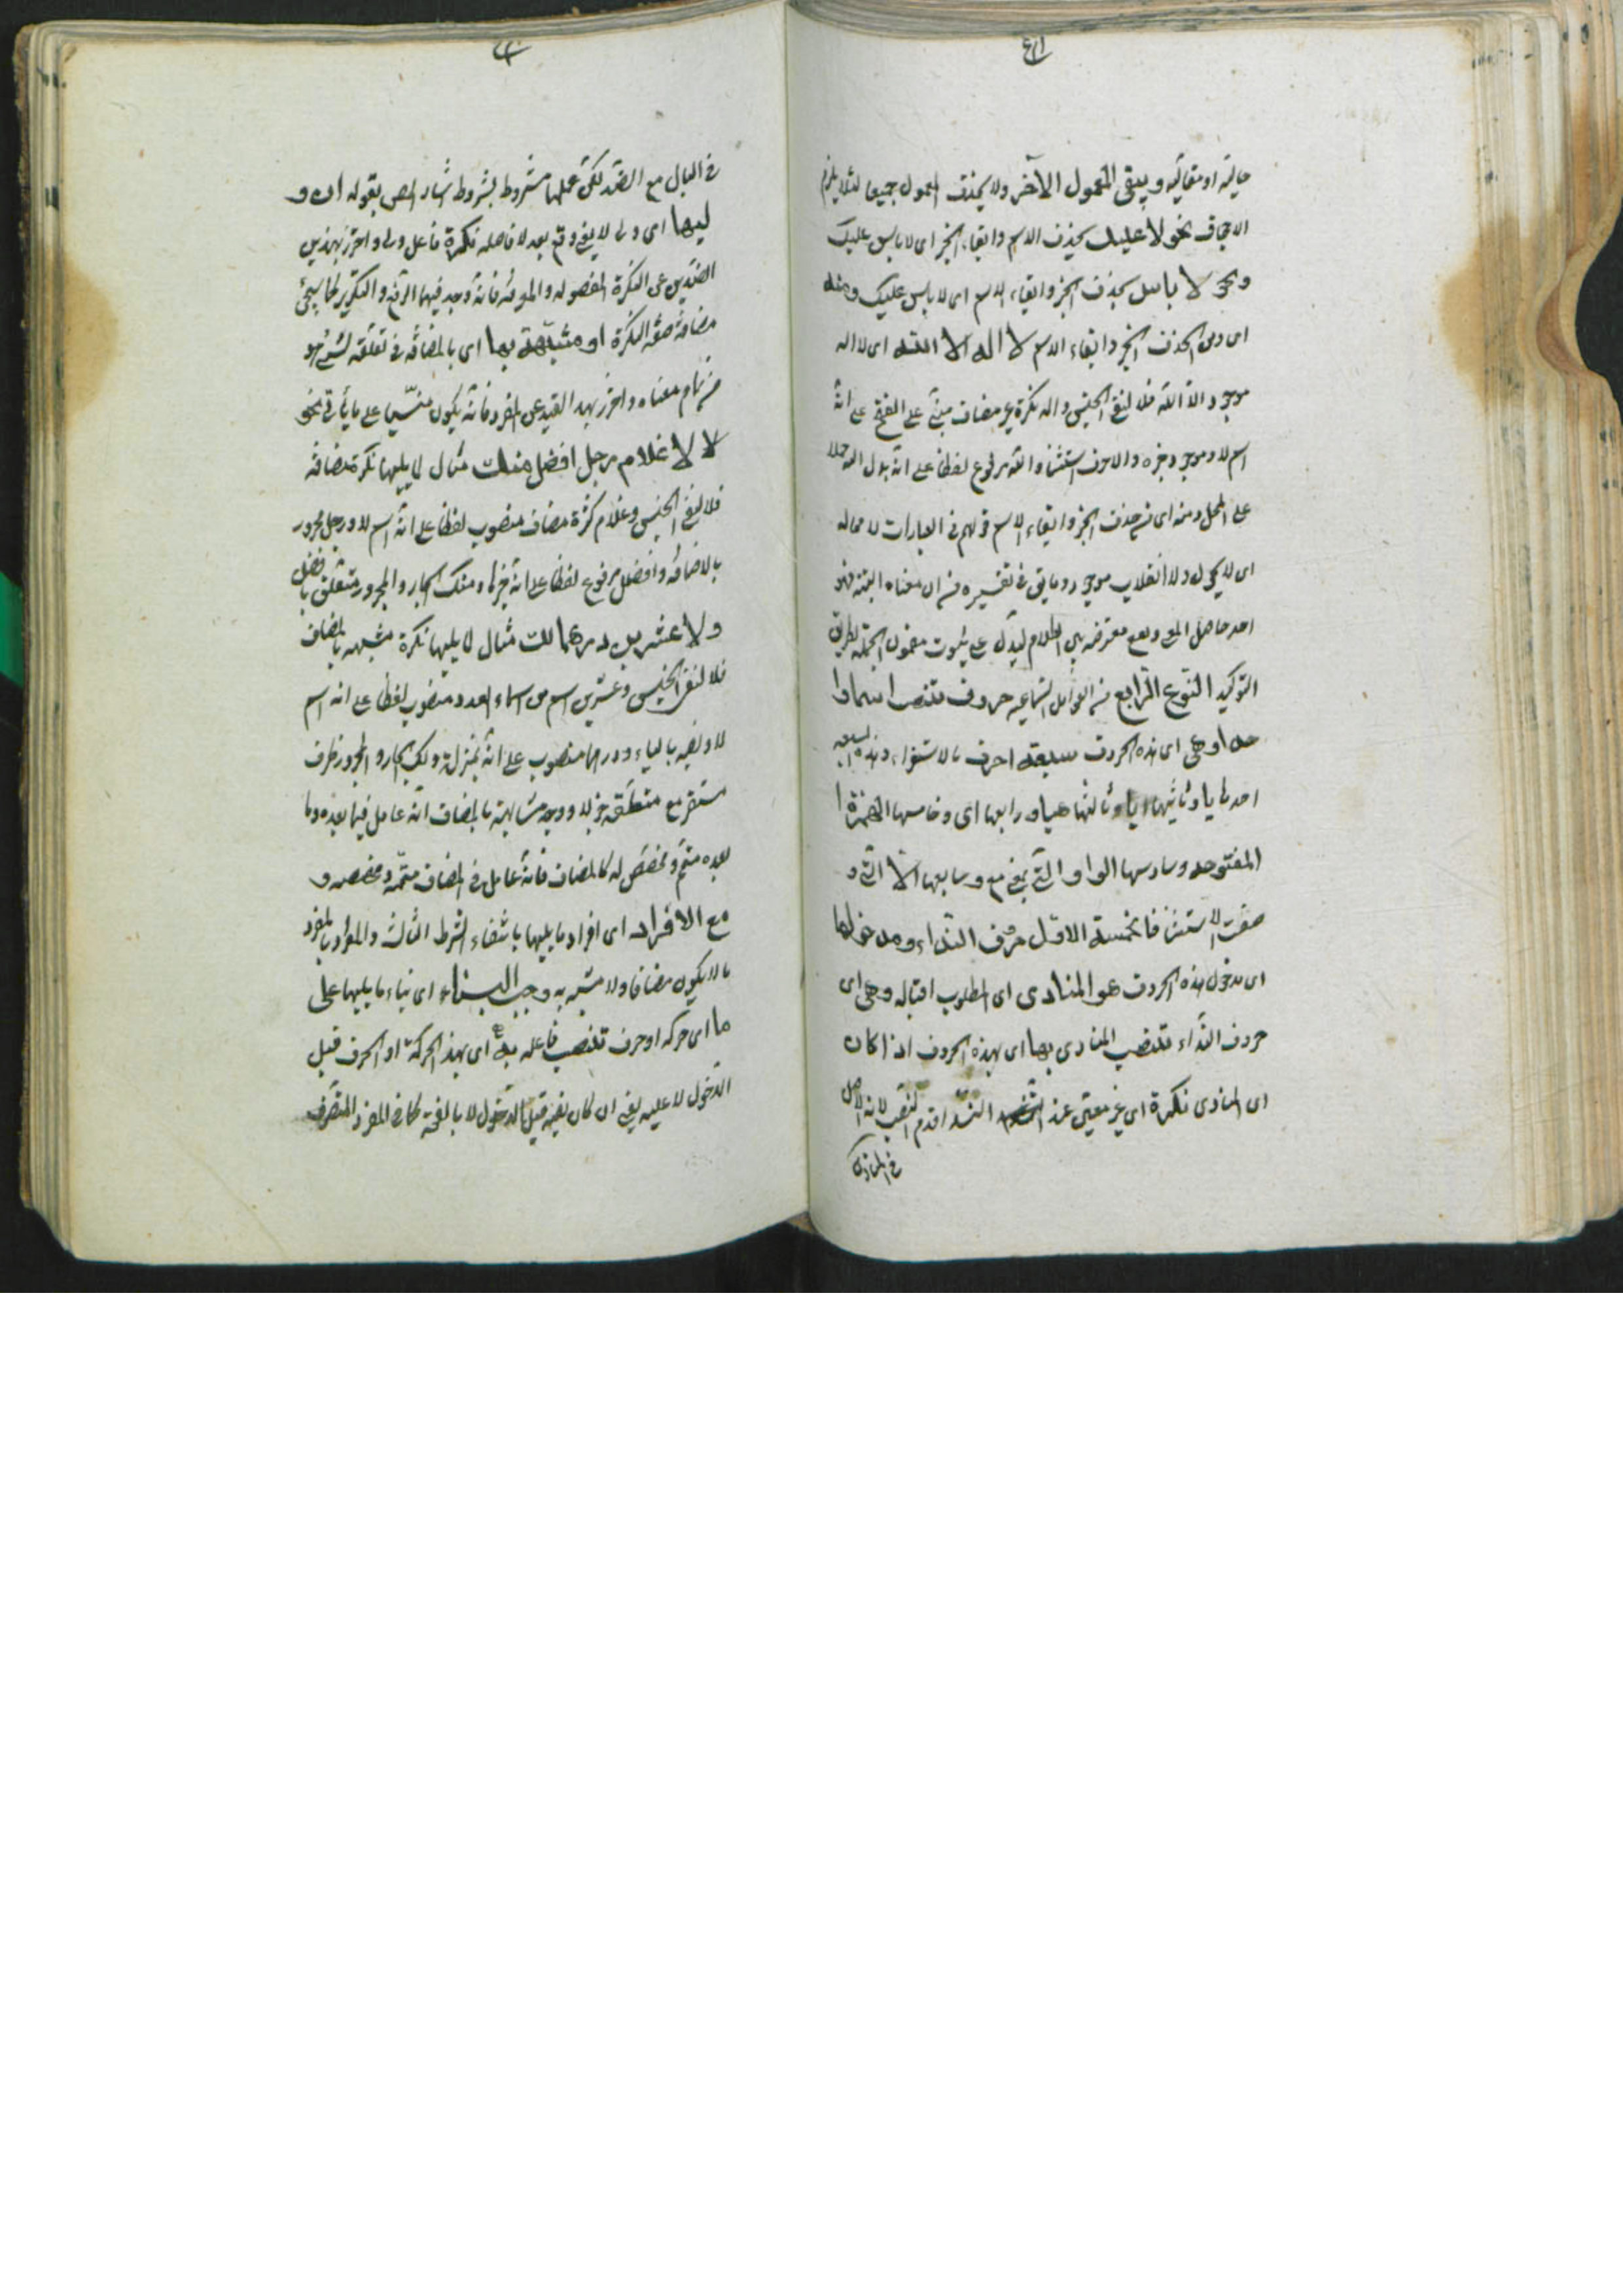 حالیة او مقالیة و یبقی المعمول الآخر ولا یحذف المعمول جمیعا لئلا یلزم
الاجحاف نحو لا علیك بحذف الاسم وابقاء الخبر ای لا باس علیك
ونحو لا باس بحذف الخبر وابقاء الاسم ای لا باس علیك ومنه
ای ومن الحذف الخبر وابقاء الاسم لا اله الا الله ای لا اله
موجود الا الله فلا لنفی الجنس واله نكرة غیر مضاف مبنی علی الفتح علی انه
اسم لا وموجود خبره والا حرف استثناء والله مرفوع لفظا علی انه بدل اله حملا
علی المحل ومنه ای من حذف الخبر وابقاء الاسم قولهم فی العبارات لا محاله
ای لا یحول ولا انقلاب موجود وما یق فی تفسیره من ان معناه البتة فهو
احد حاصل المع وقع معترضة بین الكلام لیدل علی ثبوت مضمون الجملة بطریق
التوكید النوع الرابع من العوامل السماعیة حروف تنصب اسما وا
حدا وهی ای هذه الحروف سبعة احرف بالاستقراء وهذه السبعة
احدها یا وثانیها ایا وثالثها هیا ورابعها ای وخامسها الهمزة ا
المفتوحه وسادسها الواو التی بمعنی مع وسابعها الا التی و
صفت الاستثنا فالخمسة الاول حرف النداء ومدخولها
ای مدخول هذه الحروف هو المنادی ای المطلوب اقباله وهی ای
حروف النداء تنصب المنادی بها ای بهذه الحروف اذا كان
ای المنادی نكرة ای غیر معین عند النداء قدم النصب لانه الاصل
فی المنادی
فی البال مع الضد لكن عملها مشروط بشروط اشار المص بقوله ان و
لیها ای ولی لا یعنی وقع بعد لا فاصلة نكرة فاعل ولی واحترز بهذین
القیدین عن النكرة المفصوله والمعرفة فانه وجد فیهما الرفع والتكریر كما سیجئ
مضافة صفة النكرة او مشبهة بها ای بالمضافة فی تعلقه لشئ هو
من تمام معناه واحترز بهذا القید عن المفرد فانه یكون مبنیا علی ما یأتی نحو
لا لا غلام رجل افضل منك مثال لا یلیها نكرة مضافة
فلا لنفی الجنس وغلام نكرة مضاف منصوب لفظا علی انه اسم لا ورجل مجرور
بالاضافة وافضل مرفوع لفظا علی انه خبرها ومنك الجار والمجرور متعلق بافضل
ولا عشرین درهما لك مثال لا یلیها نكرة مشبهه بالمضاف
فلا لنفی الجنس وعشرین اسم من اسماء العدد منصوب لفظا علی انه اسم
لا ونصبه بالیاء ودرهما منصوب علی انه تمییز له ولك الجار والمجرور ظرف
مستقر مع متعلقه خبر لا ووجه مشابهته بالمضاف انه عامل فیما بعده وما
بعده متمم ومخصص له كالمضاف فانه عامل فی المضاف متممه ومخصصه و
مع الافراد ای افراد ما یلیها بانتفاء الشرط الثالث والمراد بالمفرد
ما لا یكون مضافا ولا مشبه به وجب البناء ای بناء ما یلیها علی
ما ای حركة او حرف تنصب فاعله به ای بهذه الحركة او الحرف قبل
الدخول لا علیه یعنی ان كان نصبه قبل الدخول لا بالفتحة كما فی المفرد المنصرف